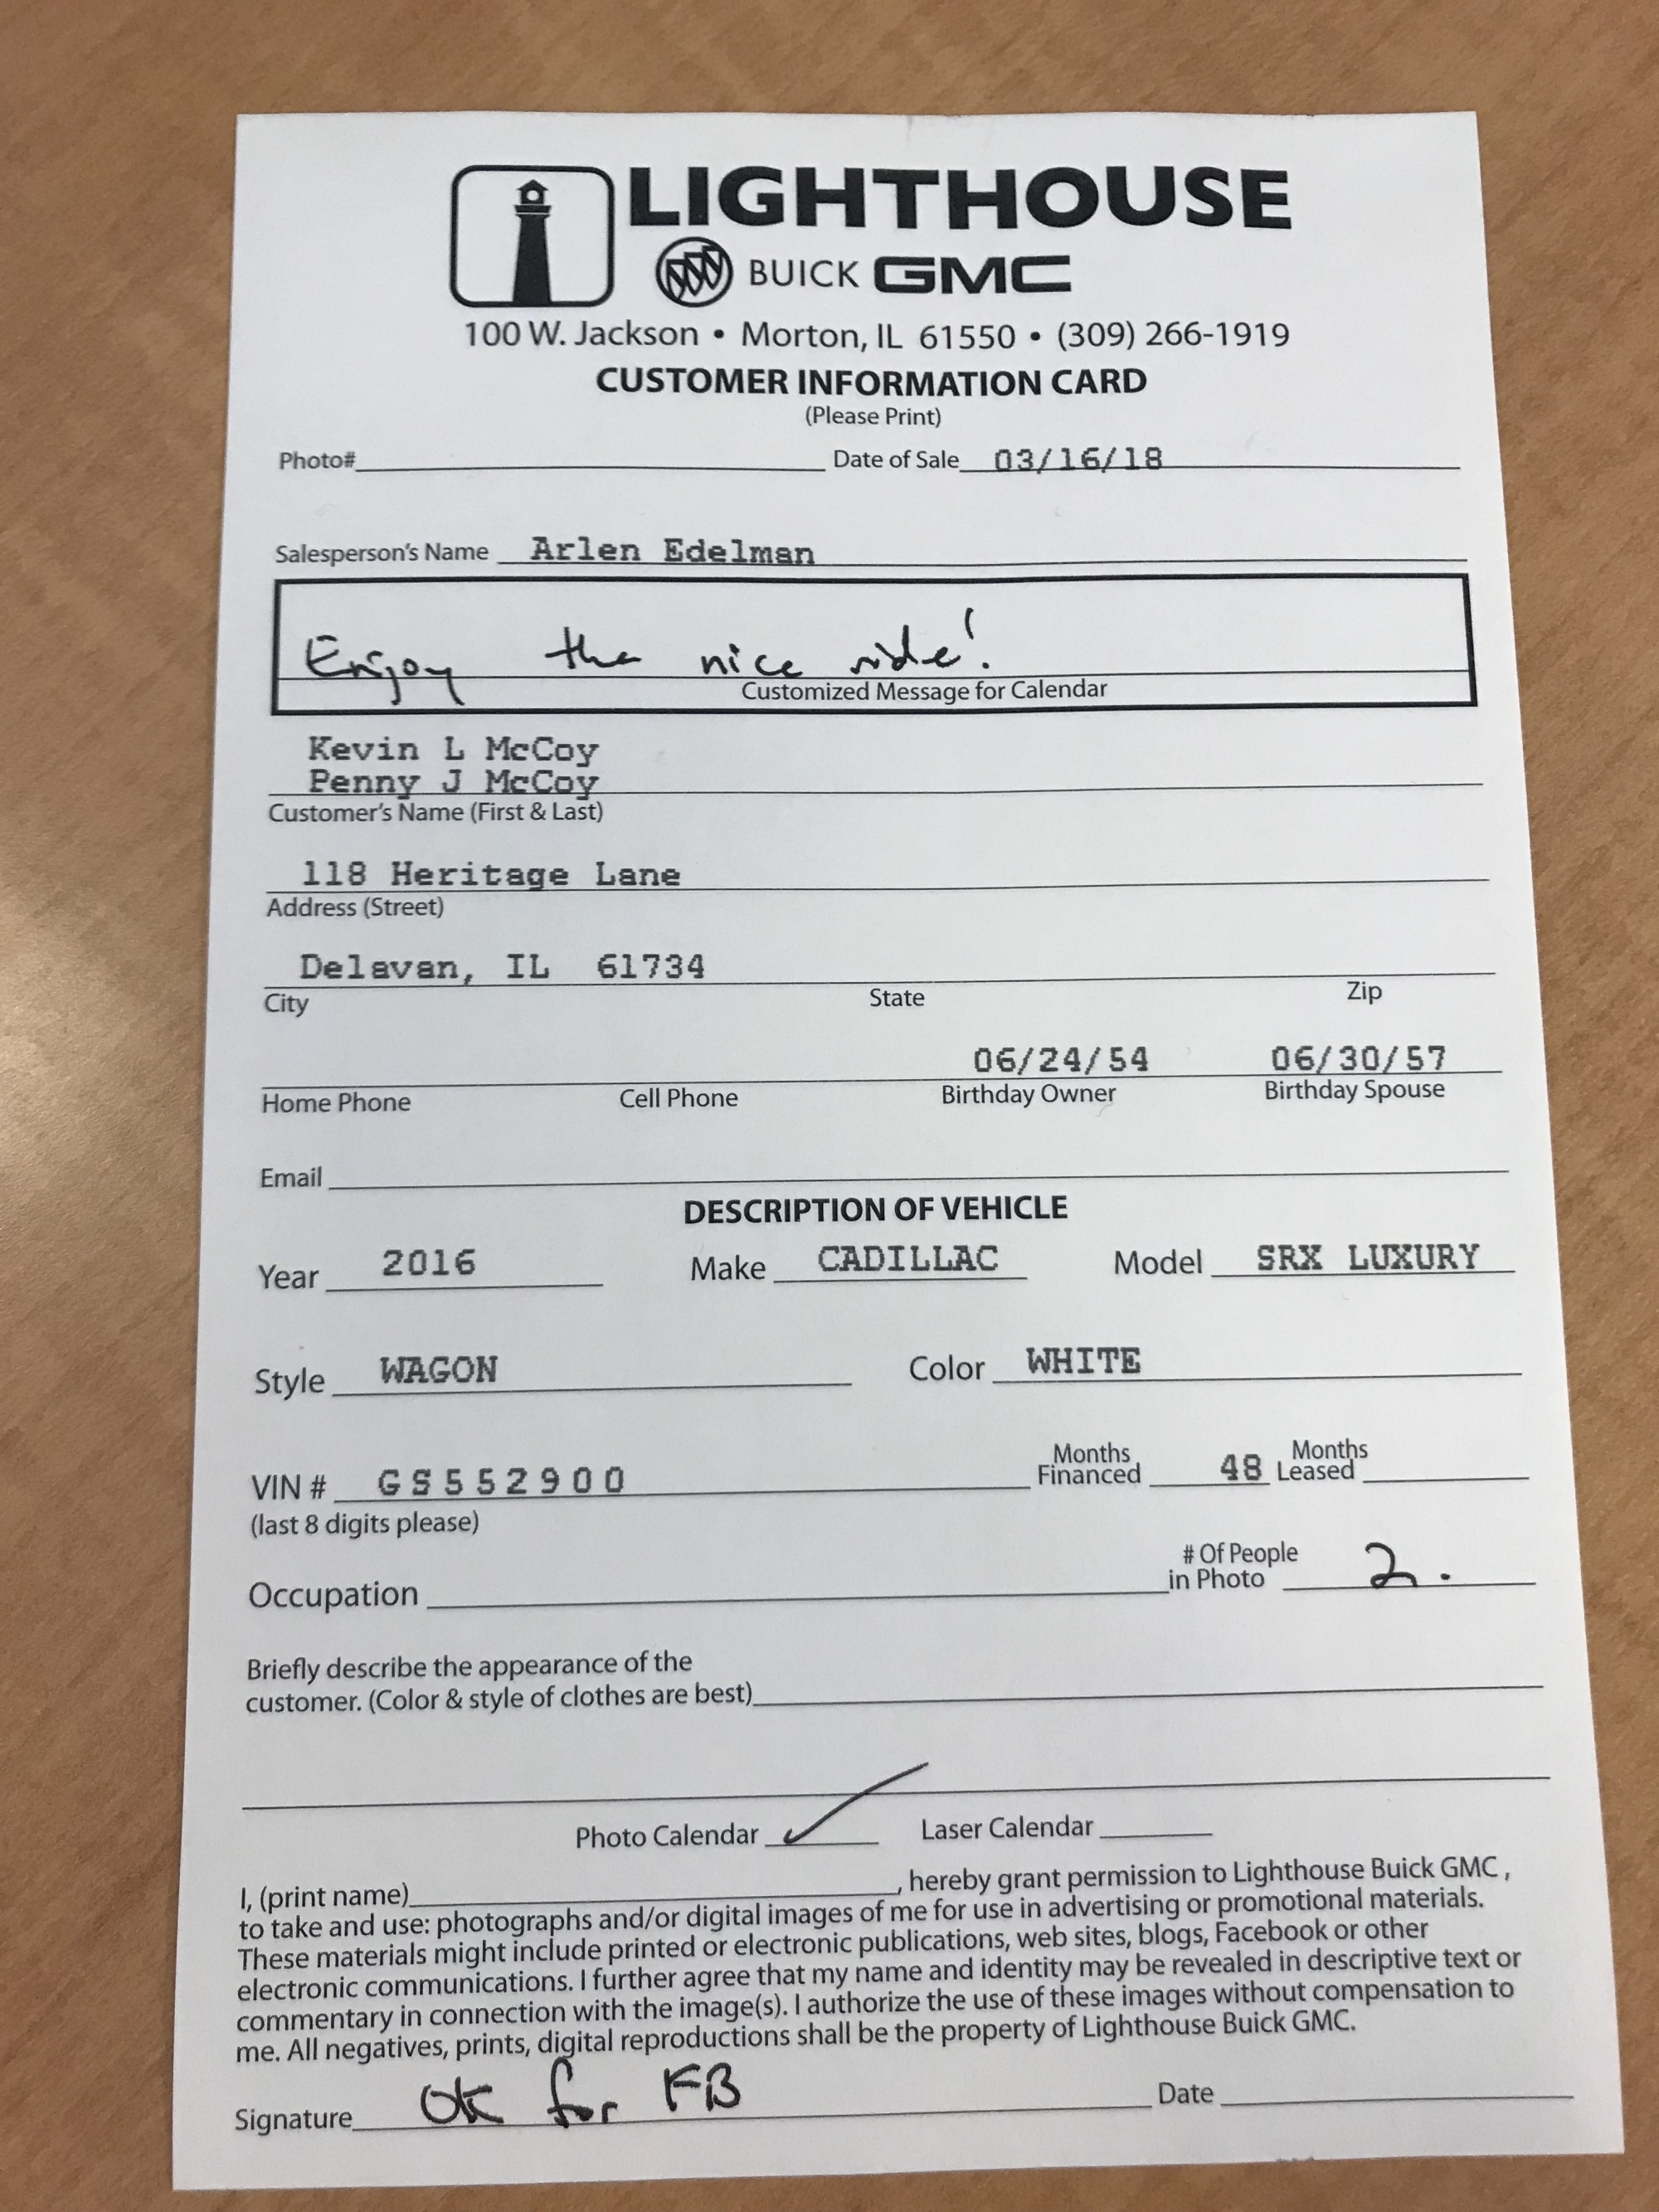 LIGHTHOUSE
BUICK GMC
100 W. Jackson • Morton, IL 61550 • (309) 266-1919
CUSTOMER INFORMATION CARD
(Please Print)
Photo# Date of Sale 03/16/18
Salesperson's Name Arlen Edelman
Enjoy the nice ride!
Customized Message for Calendar
Kevin L McCoy
Penny J McCoy
Customer's Name (First & Last)
118 Heritage Lane
Address (Street)
Delavan, IL 61734
City State Zip
06/24/54 06/30/57
Home Phone Cell Phone Birthday Owner Birthday Spouse
Email
DESCRIPTION OF VEHICLE
Year 2016 Make CADILLAC Model SRX LUXURY
Style WAGON Color WHITE
VIN # GS552900 Months Financed 48 Months Leased
(last 8 digits please)
Occupation # Of People in Photo 2.
Briefly describe the appearance of the
customer. (Color & style of clothes are best)
Photo Calendar ✓ Laser Calendar
I, (print name) , hereby grant permission to Lighthouse Buick GMC ,
to take and use: photographs and/or digital images of me for use in advertising or promotional materials.
These materials might include printed or electronic publications, web sites, blogs, Facebook or other
electronic communications. I further agree that my name and identity may be revealed in descriptive text or
commentary in connection with the image(s). I authorize the use of these images without compensation to
me. All negatives, prints, digital reproductions shall be the property of Lighthouse Buick GMC.
Signature OK for FB Date